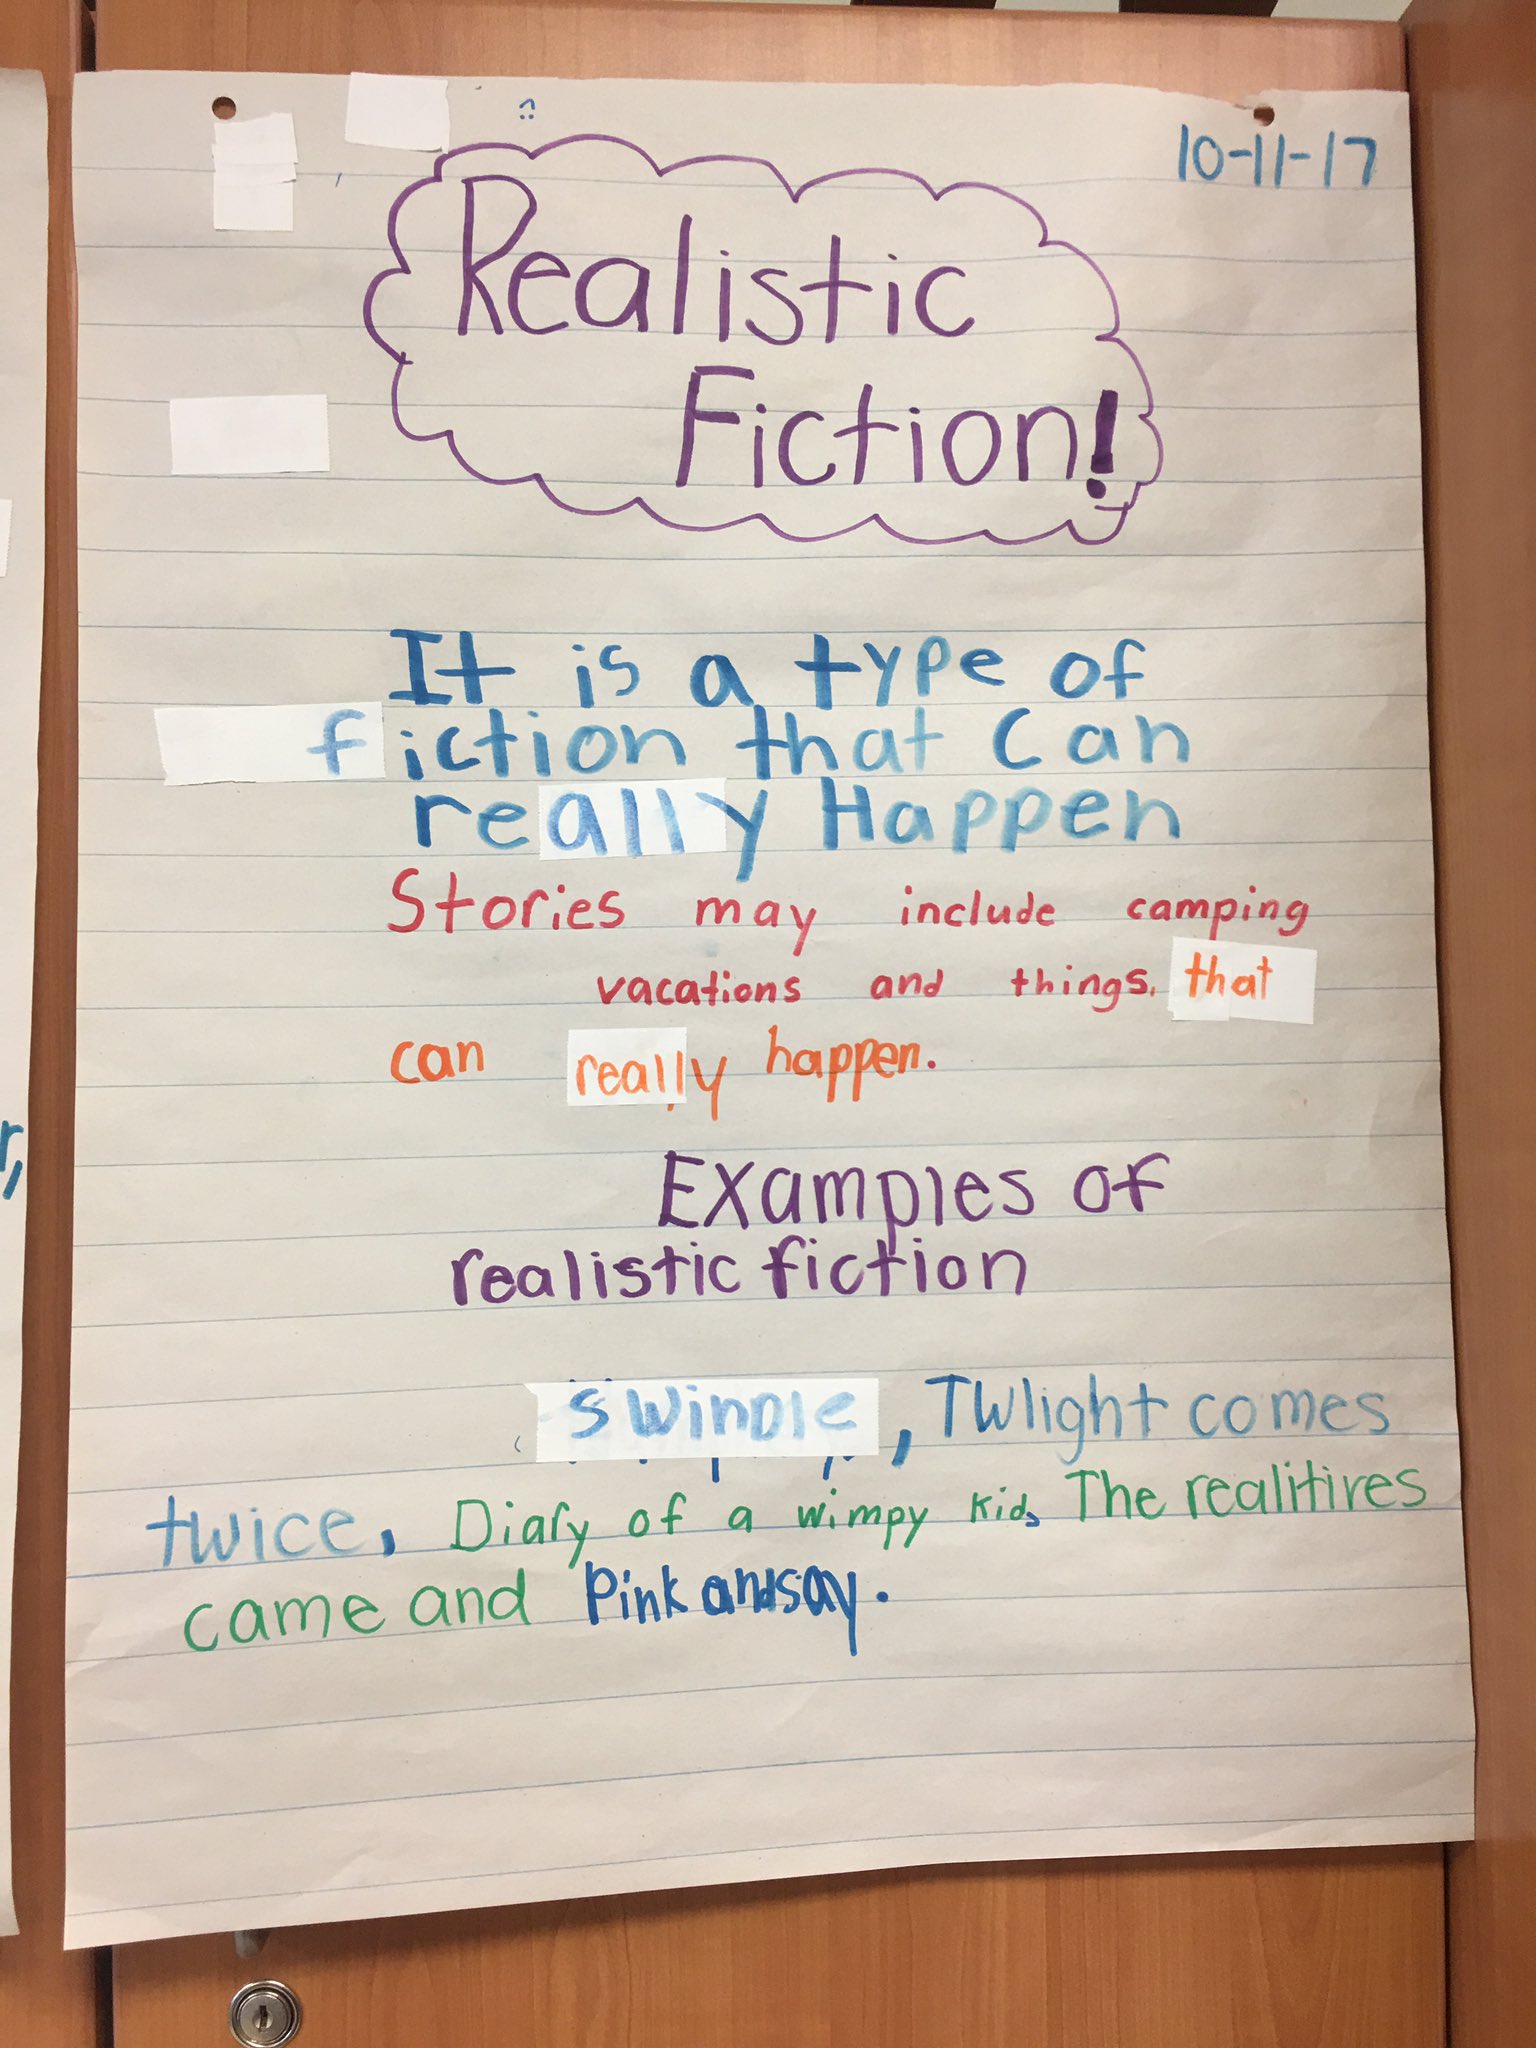 10-11-17
Realistic
Fiction!
It is a type of
fiction that can
really Happen
Stories may include camping
vacations and things. that
can really happen.
Examples of
realistic fiction
swindle, Twlight comes
twice, Diary of a wimpy kid, The realitires
came and Pink andsay.
r,